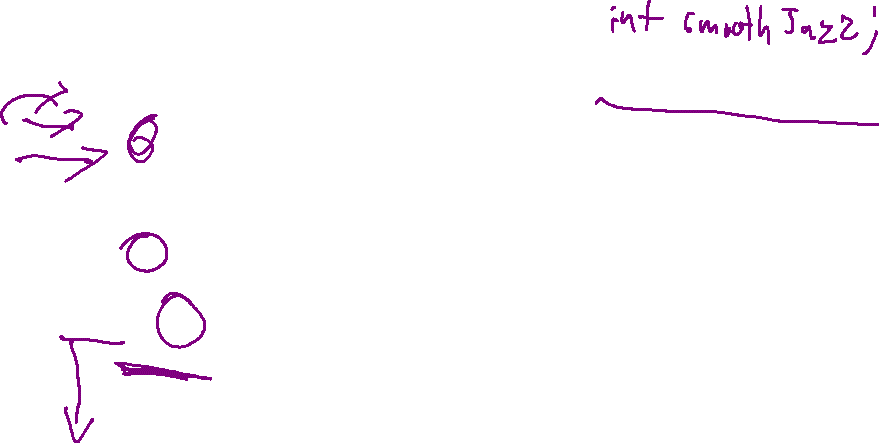 int smoothJazz;